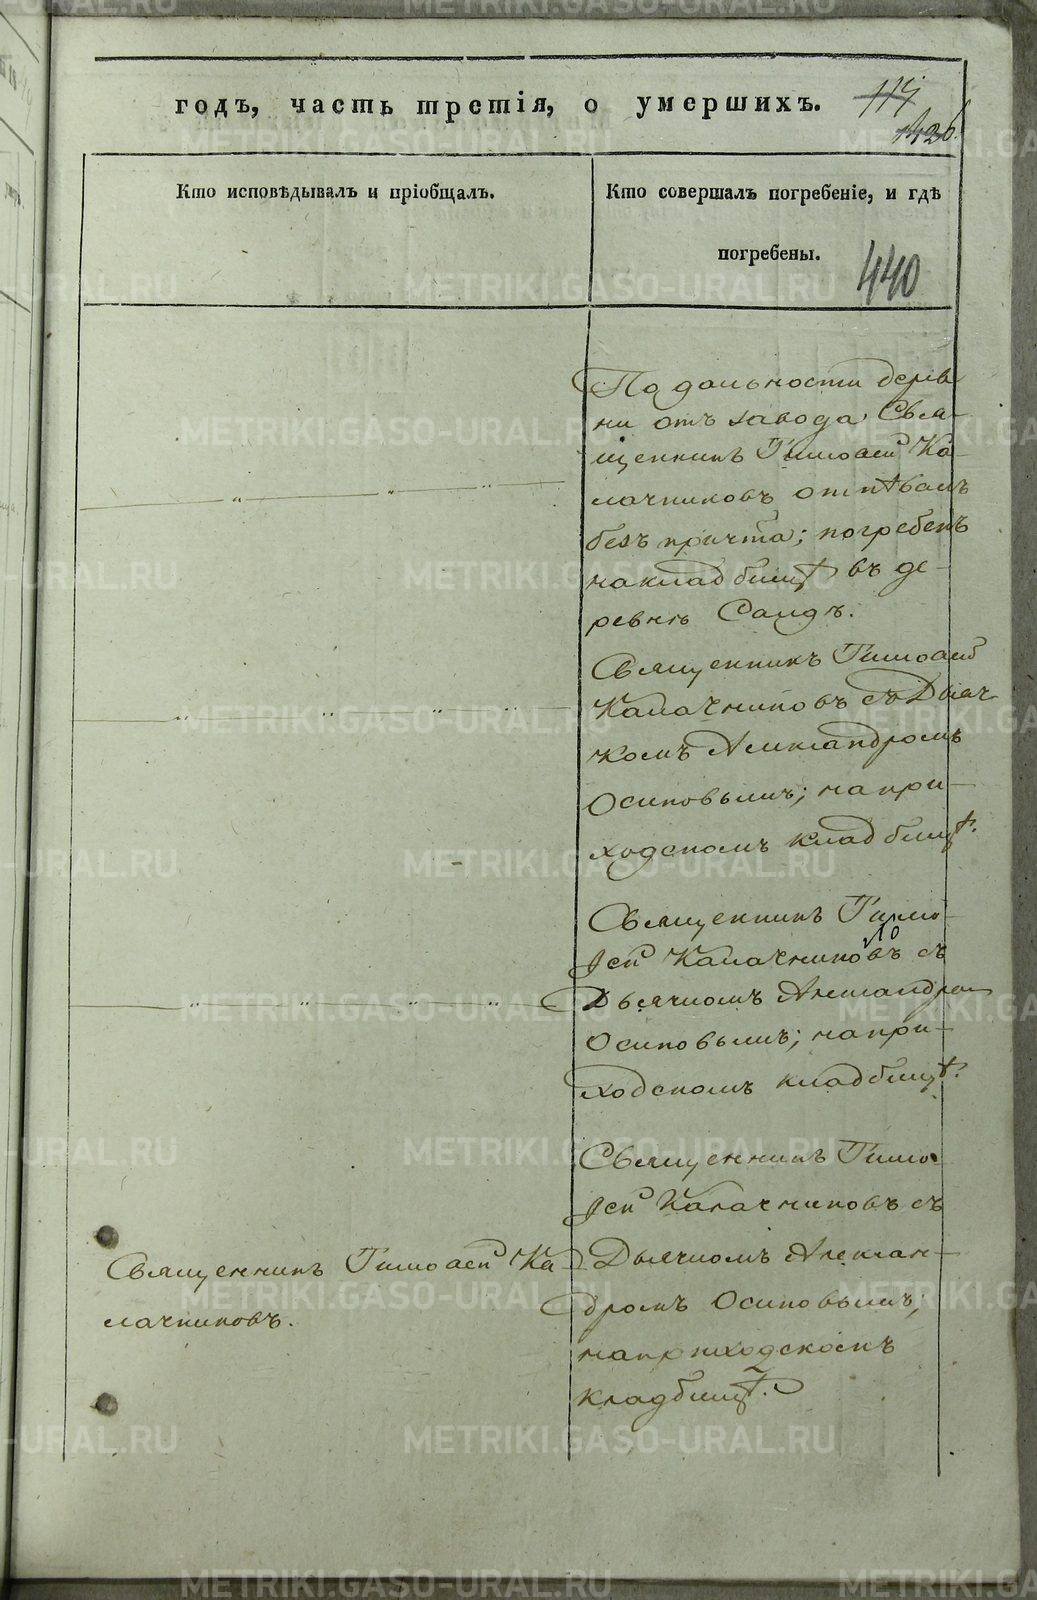 годъ, часть третія, о умершихъ.
114
126.
Кто исповѣдывалъ и пріобщалъ.
Кто совершалъ погребеніе, и гдѣ
погребены.
440
По дальности дерев
ни отъ завода Свя-
щенникъ Тимоѳей Ка-
лачниковъ отпѣвалъ
безъ причта; погребенъ
на кладбищѣ въ де-
ревнѣ Саидъ.
Священникъ Тимоѳей
Калачниковъ съ Дьяч
комъ Александромъ
Осиповымъ; на при-
ходскомъ кладбищѣ.
Священникъ Тимо-
ѳей Калачниковъ съ
Дьячкомъ Александром
Осиповымъ; на при-
ходскомъ кладбищѣ.
Священникъ Тимо
ѳей Калачниковъ съ
Дьячкомъ Алексан-
дромъ Осиповымъ;
на приходскомъ
кладбищѣ.
Священникъ Тимоѳей Ка
лачниковъ.
METRIKI.GASO-URAL.RU